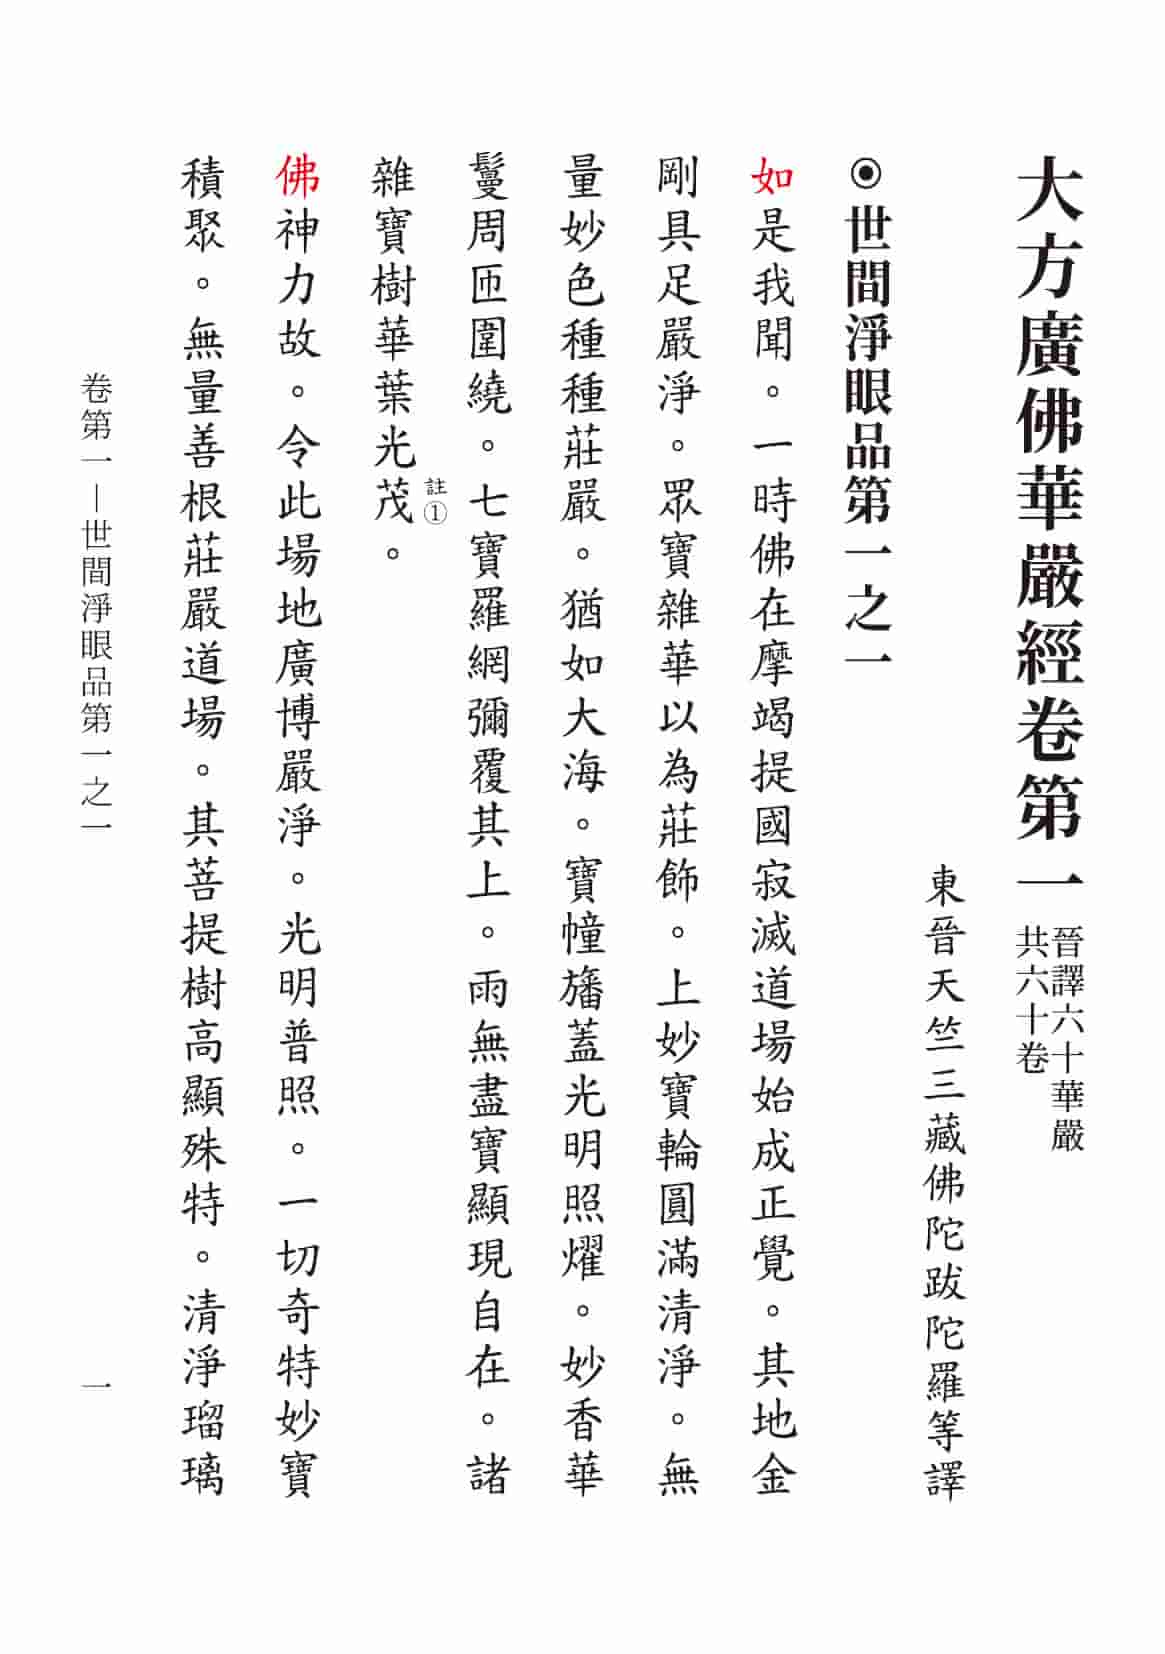 大方廣佛華嚴經卷第一
晉譯六十華嚴
共六十卷
東晉天竺三藏佛陀跋陀羅等譯
◉世間淨眼品第一之一
如是我聞。一時佛在摩竭提國寂滅道場始成正覺。其地金
剛具足嚴淨。眾寶雜華以為莊飾。上妙寶輪圓滿清淨。無
量妙色種種莊嚴。猶如大海。寶幢旛蓋光明照耀。妙香華
鬘周匝圍繞。七寶羅網彌覆其上。雨無盡寶顯現自在。諸
雜寶樹華葉光茂。
註①
佛神力故。令此場地廣博嚴淨。光明普照。一切奇特妙寶
積聚。無量善根莊嚴道場。其菩提樹高顯殊特。清淨瑠璃
卷第一—世間淨眼品第一之一
一